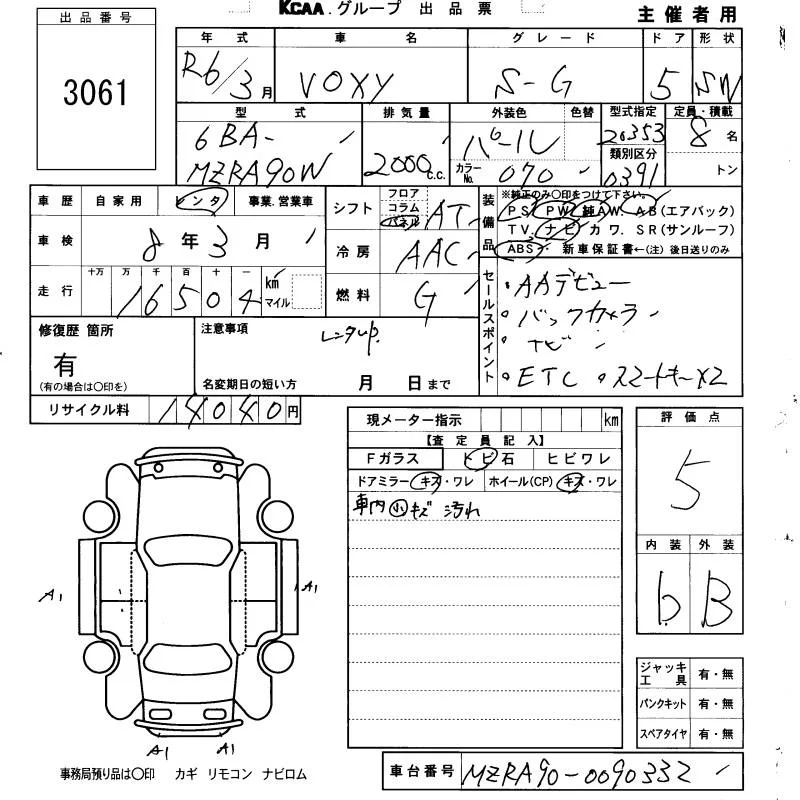 KCAA.グループ 出品票
主催者用
出品番号
3061
年式 車名 グレード ドア 形状
R6/3月 VOXY S-G 5 SW
型式 排気量 外装色 色替 型式指定 定員・積載
6BA-
MZRA90W 2000c.c. パール 20353 8名
カラーNo. 070 類別区分 0391 トン
車歴 自家用 レンタ 事業.営業車
車検 8年3月
走行 十万 万 千 百 十 一
16504 km マイル
シフト フロア コラム パネル AT
冷房 AAC
燃料 G
装備品
※純正のみ○印をつけて下さい。
PS PW 純AW. AB(エアバック)
TV. ナビ カワ. SR(サンルーフ)
ABS. 新車保証書←(注) 後日送りのみ
セールスポイント
・AAデビュー
・バックカメラ
・ナビ
・ETC ・スマートキー×2
修復歴 箇所
有
(有の場合は○印を)
注意事項
レンタup.
名変期日の短い方 月 日まで
リサイクル料 14040円
現メーター指示 km
【査定員記入】
Fガラス トビ石 ヒビワレ
ドアミラー キズ・ワレ ホイール(CP) キズ・ワレ
車内小キズ 汚れ
評価点
5
内装 外装
b B
A1 A1
A1 A1
ジャッキ工具 有・無
パンクキット 有・無
スペアタイヤ 有・無
事務局預り品は○印 カギ リモコン ナビロム
車台番号 MZRA90-0090332